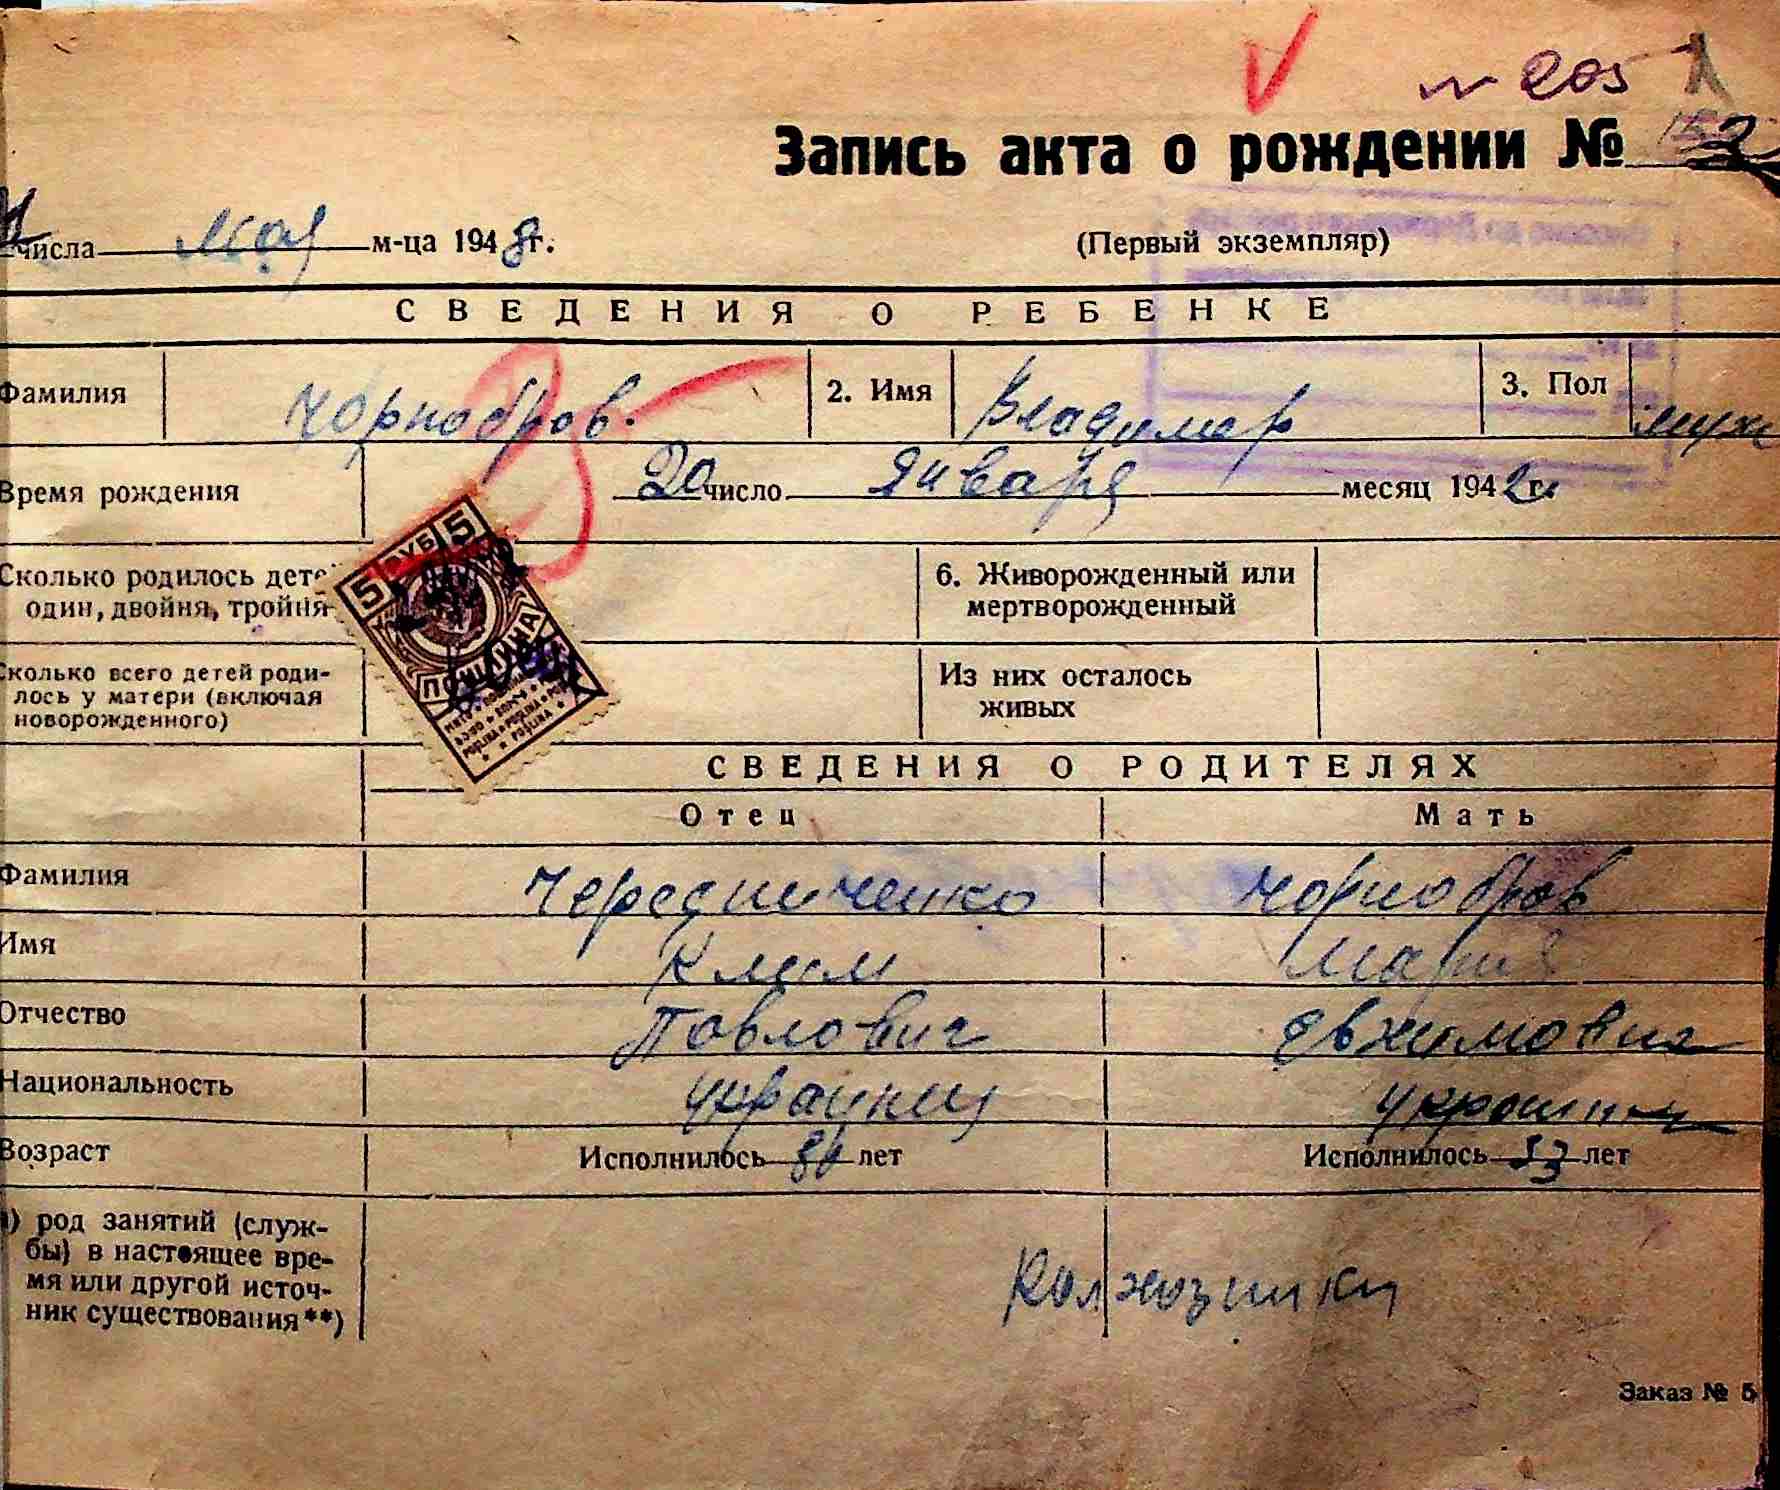 № 205
Запись акта о рождении №
числа мая м-ца 1948 г.
(Первый экземпляр)
СВЕДЕНИЯ О РЕБЕНКЕ
Фамилия Чорнобров. 2. Имя Владимир 3. Пол муж
Время рождения 20 число Января месяц 1942 г.
Сколько родилось дете
один, двойня, тройня
6. Живорожденный или
мертворожденный
Сколько всего детей роди-
лось у матери (включая
новорожденного)
Из них осталось
живых
5 РУБ 5
ПОШЛИНА
СВЕДЕНИЯ О РОДИТЕЛЯХ
Отец Мать
Фамилия Чередниченко Чорнобров
Имя Клим Мария
Отчество Павлович Евхимовна
Национальность украинец украинка
Возраст Исполнилось лет Исполнилось 33 лет
) род занятий (служ-
бы) в настоящее вре-
мя или другой источ-
ник существования**)
Колхозники
Заказ № 5